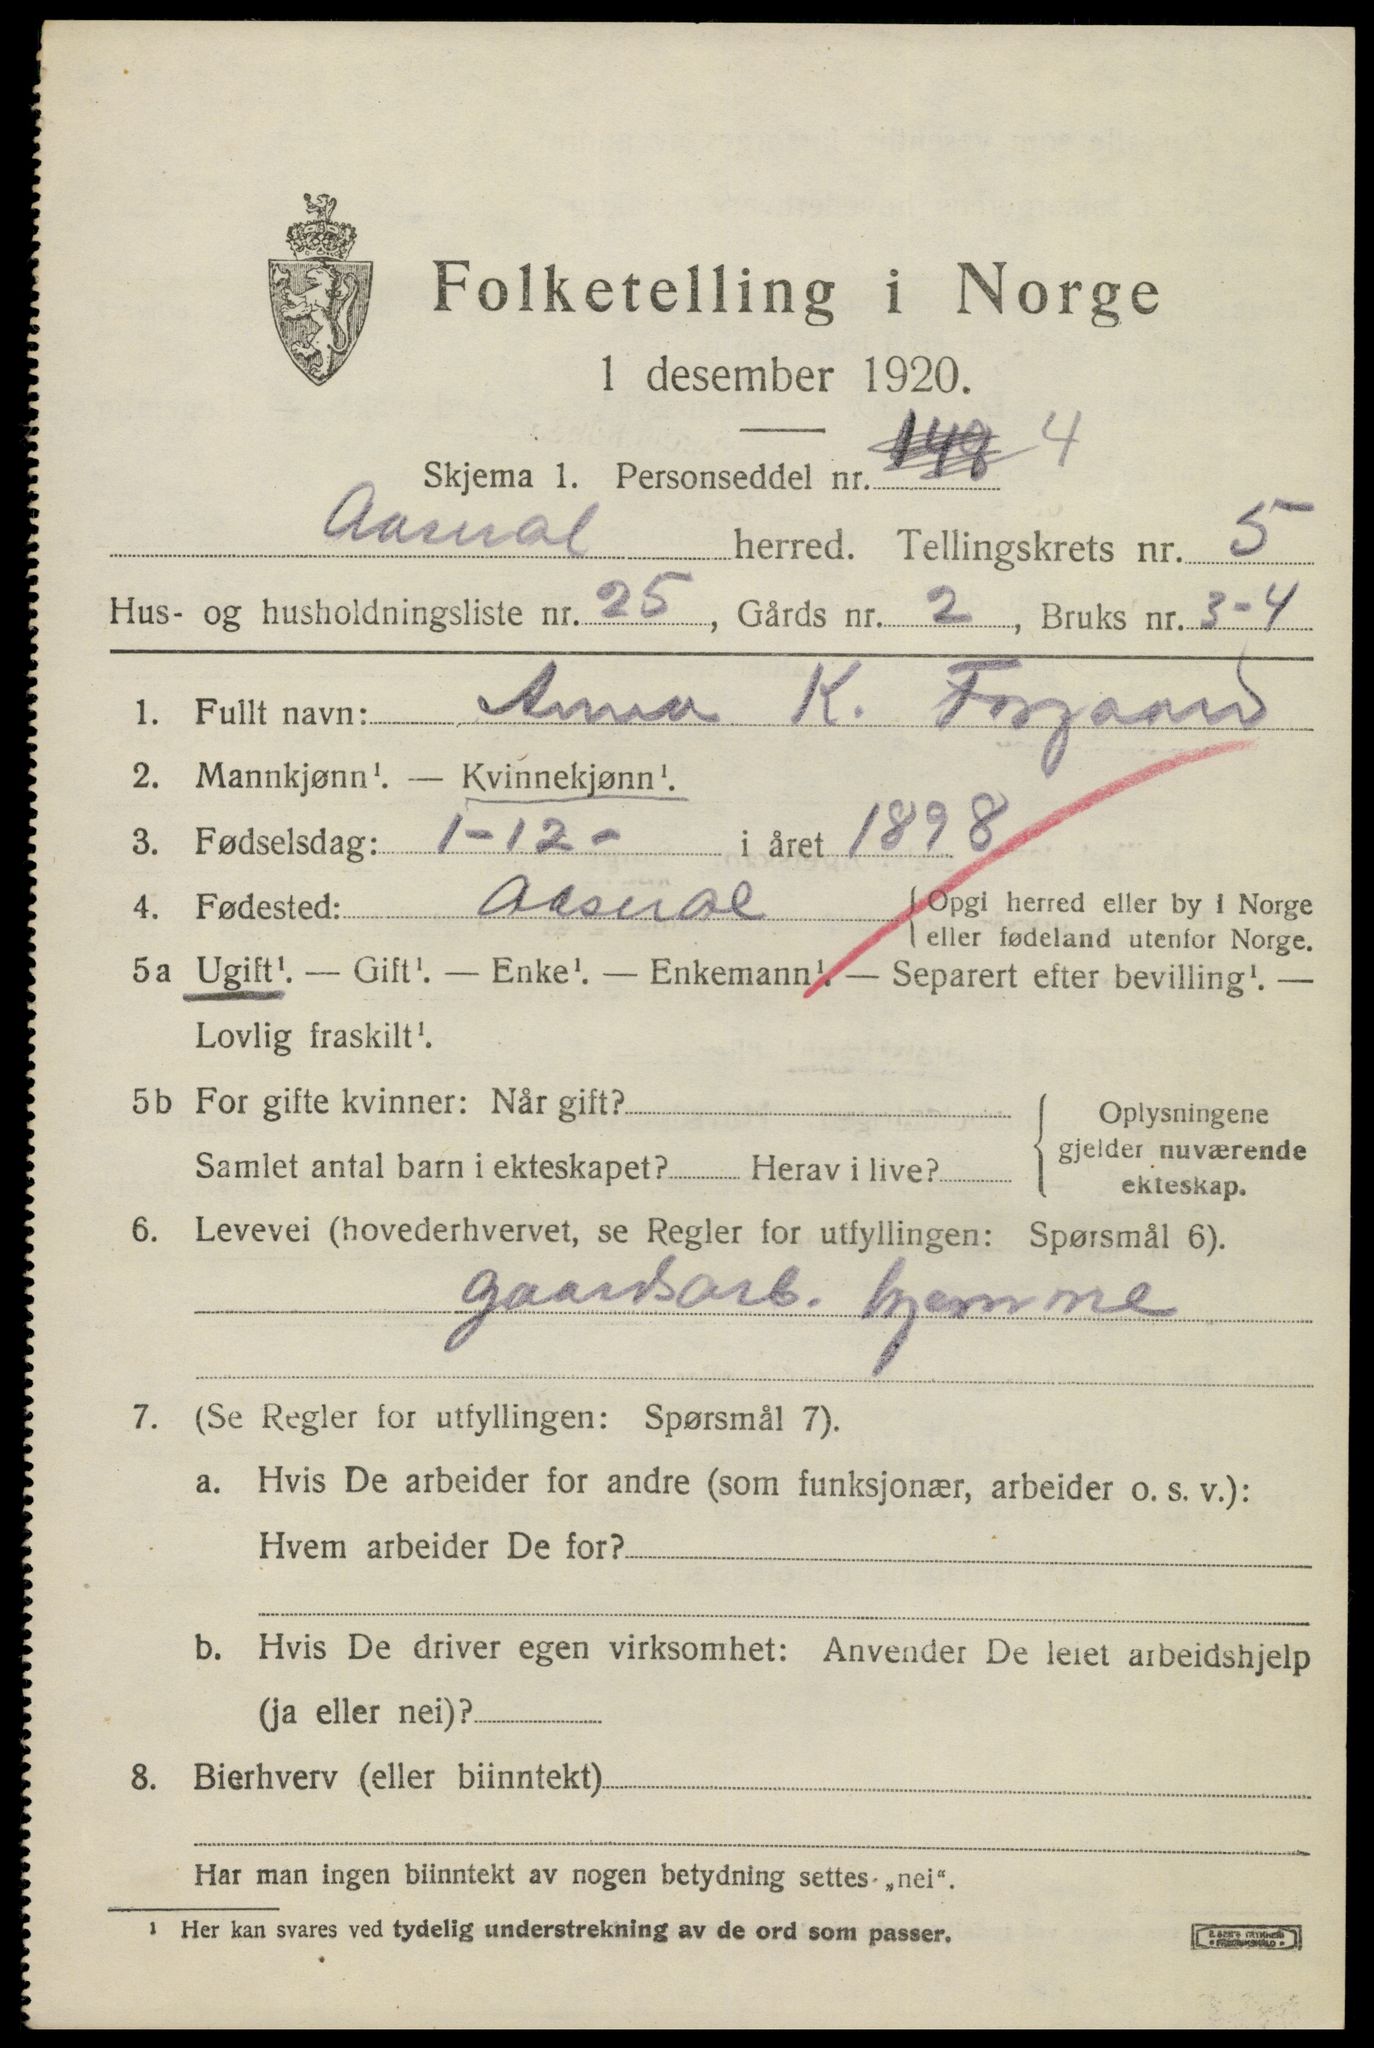 Folketelling i Norge
1 desember 1920.
Skjema 1. Personseddel nr. 148 4
Aaseral herred. Tellingskrets nr. 5
Hus- og husholdningsliste nr. 25, Gårds nr. 2, Bruks nr. 3-4
1. Fullt navn: Anna K. Forgaard
2. Mannkjønn¹. — Kvinnekjønn¹.
3. Fødselsdag: 1-12- i året 1898
4. Fødested: Aaseral {Opgi herred eller by i Norge
eller fødeland utenfor Norge.
5a Ugift¹. — Gift¹. — Enke¹. — Enkemann¹. — Separert efter bevilling¹. —
Lovlig fraskilt¹.
5b For gifte kvinner: Når gift?
Samlet antal barn i ekteskapet? Herav i live?
Oplysningene
gjelder nuværende
ekteskap.
6. Levevei (hovederhvervet, se Regler for utfyllingen: Spørsmål 6).
gaardsarb. hjemme
7. (Se Regler for utfyllingen: Spørsmål 7).
a. Hvis De arbeider for andre (som funksjonær, arbeider o. s. v.):
Hvem arbeider De for?
b. Hvis De driver egen virksomhet: Anvender De leiet arbeidshjelp
(ja eller nei)?
8. Bierhverv (eller biinntekt)
Har man ingen biinntekt av nogen betydning settes „nei“.
¹ Her kan svares ved tydelig understrekning av de ord som passer.